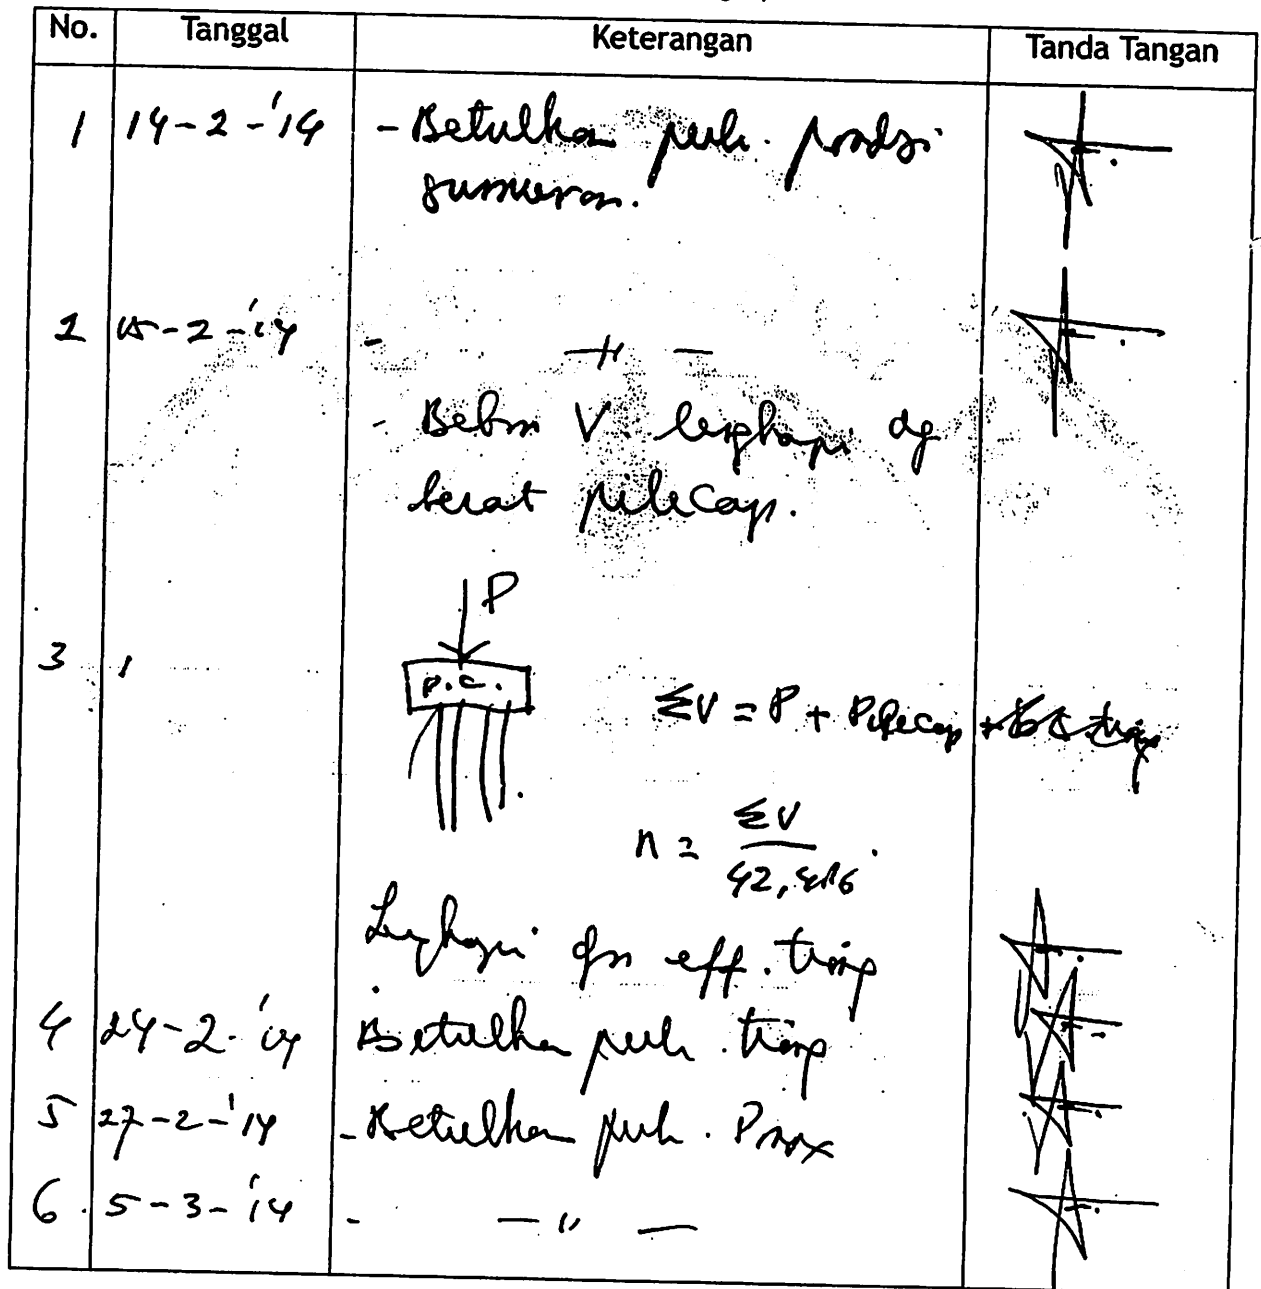 No. Tanggal Keterangan Tanda Tangan
1 14-2-'14 - Betulkan perh. pondsi
sumuran.
2 15-2-'14 - —〃—
- Beban V. lengkapi dg
berat pilecap.
P
3 p.c.
ΣV = P + Pilecap
n = ΣV
42,416
Lengkapi eff. tiang
4 24-2-'14 Betulkan perh. tiang
5 27-2-'14 - Betulkan perh. Pmax
6. 5-3-'14 - —〃—